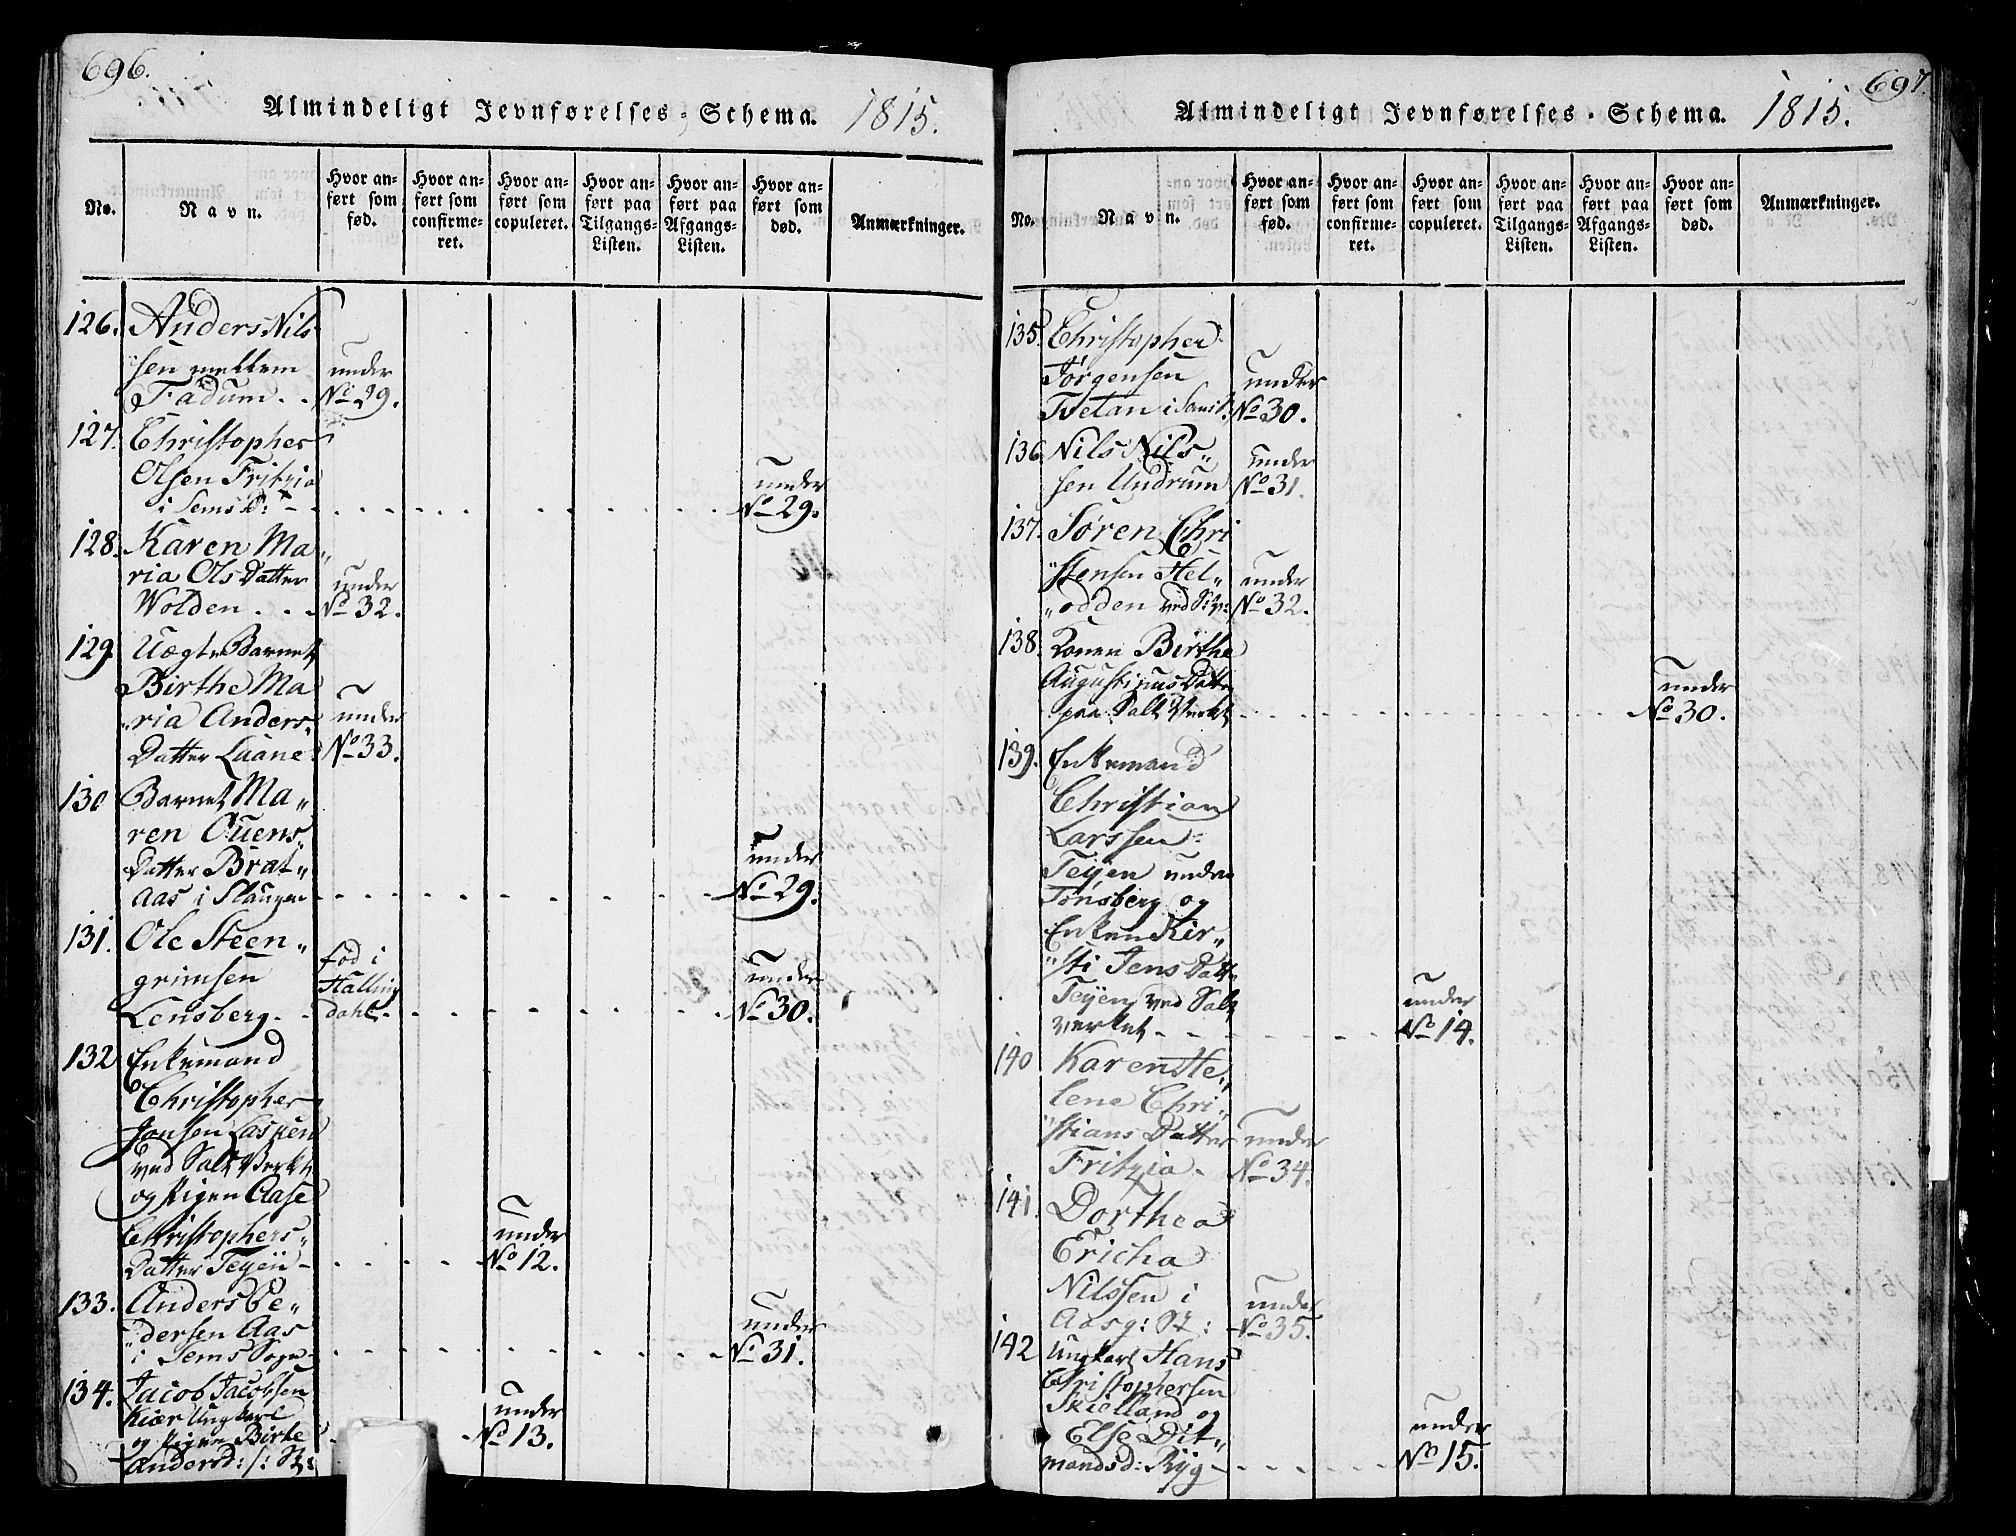 696.
Almindeligt Jevnførelses-Schema. 1815.
No.
Navn.
Hvor an-
ført som
fød.
Hvor an-
ført som
confirme-
ret.
Hvor an-
ført som
copuleret.
Hvor an-
ført paa
Tilgangs-
Listen.
Hvor an-
ført paa
Afgangs-
Listen.
Hvor an-
ført som
død.
Anmærkninger.
126. Anders Nils
"sen mellem under
Fadum. . No 29.
127. Christopher
Olsen Fritzia under
i Sems No 29.
128. Karen Ma"
ria Ols Datter under
Wolden . . . No 32.
129 Uægte Barnet
Birthe Ma
"ria Anders" under
Datter Luane No 33.
130 Barnet Ma"
ren Ouens" under
Datter Brat"
Aas i Slaugen No 29.
131. Ole Steen" fød i under
grimsen Halling
Lensberg. . dahl. No 30.
132 Enkemand
Christopher
Jonsen Lasken
ved Salt Verket
og Pigen Aase
Christophers" under
Datter Teÿen No 12.
133. Anders Pe" under
"dersen Aas
"i Sems Sogn No 31.
134. Jacob Jacobsen under
Kiær Ungkarl
og Pigen Birte No 13.
Andersd:
697.
Almindeligt Jevnførelses-Schema. 1815.
No.
Navn.
Hvor an-
ført som
fød.
Hvor an-
ført som
confirme-
ret.
Hvor an-
ført som
copuleret.
Hvor an-
ført paa
Tilgangs-
Listen.
Hvor an-
ført paa
Afgangs-
Listen.
Hvor an-
ført som
død.
Anmærkninger.
135. Christopher
Jørgensen under
Tvetan i No 30.
136 Nils Nils" under
sen Undrum No 31.
137. Søren Chri
"stensen Hel" under
"odden ved No 32.
138. Konen Birthe
Augustinus Datter under
paa Salt Verket No 30.
139. Enkemand
Christian
Larssen
Teÿen under
Tønsberg og
Enken Kir"
"sti Jens Datt
Teÿen ved Salt under
verket No 14.
140 Karen He"
lene Chri"
"stians Datter under
Fritzia. No 34.
141. Dorthea
Ericha
Nilssen i under
Aasg: No 35.
142 Ungkarl Hans
Christophersen
Skielland og under
Else Dit"
mandsd: Ryg No 15.